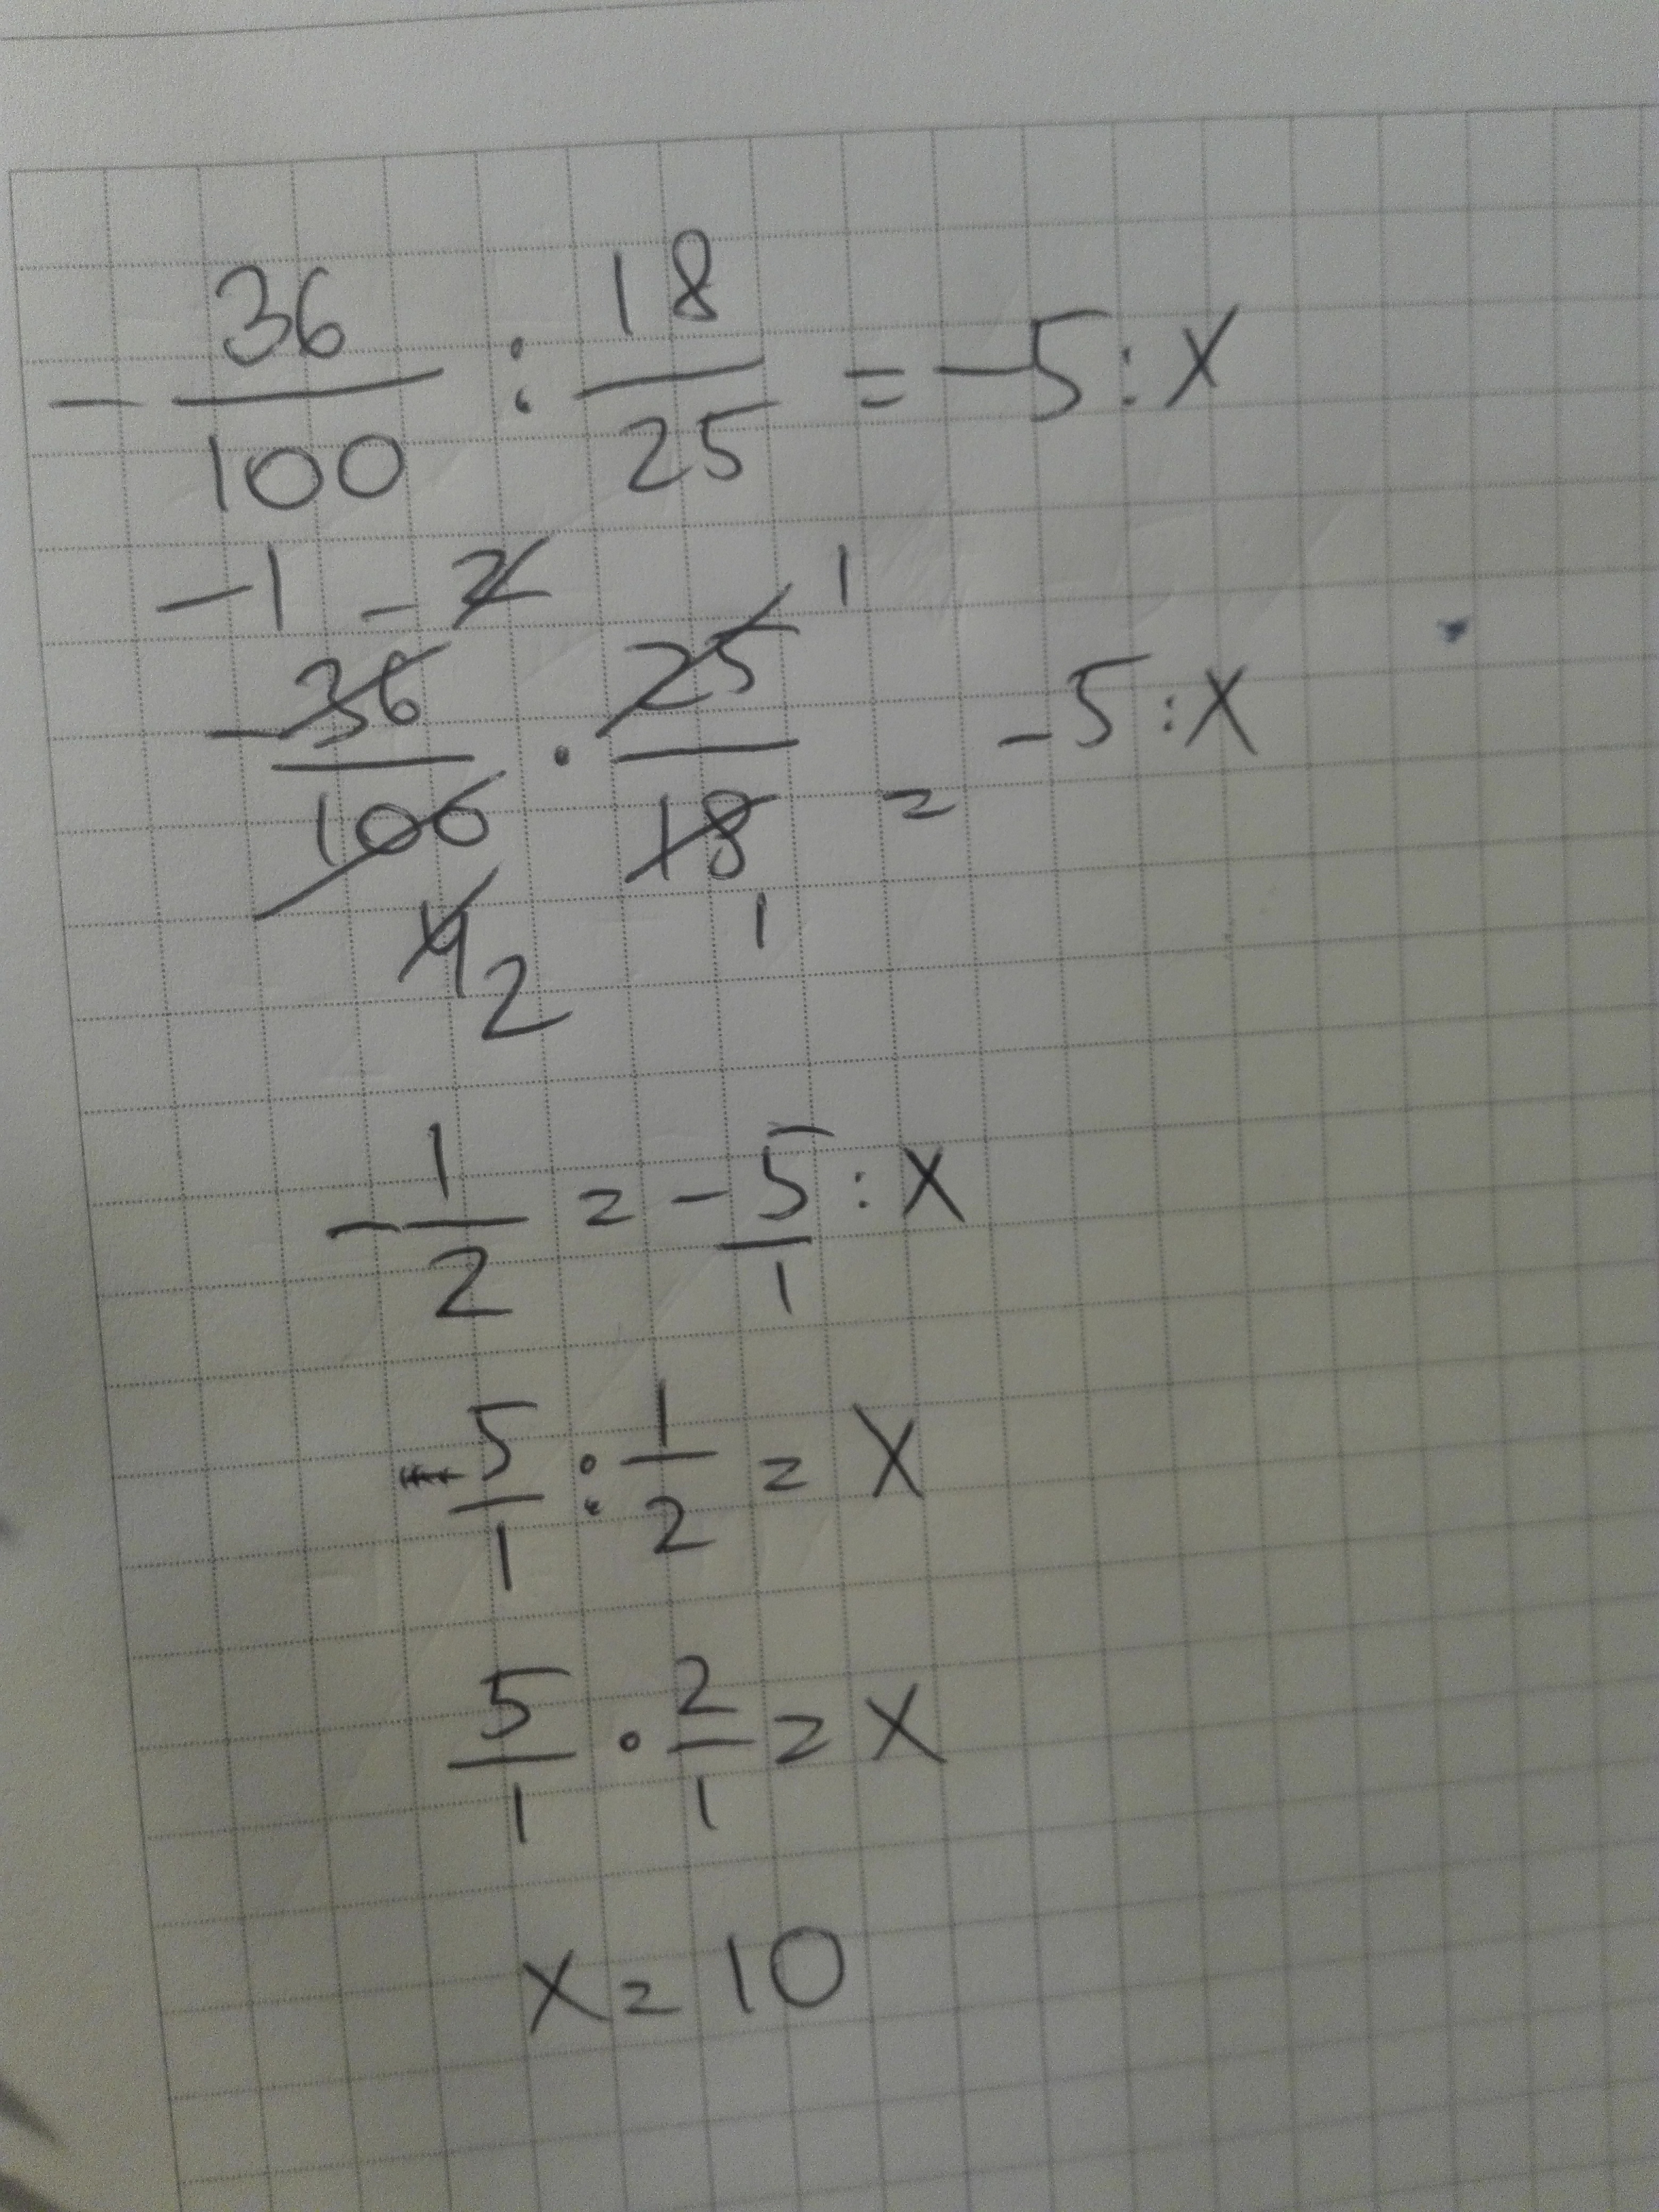 -36/100 : 18/25 = -5 : x
-1 -2 1
-36/100 · 25/18 = -5 : x
4 2 1
-1/2 = -5/1 : x
5/1 : 1/2 = x
5/1 · 2/1 = x
x = 10